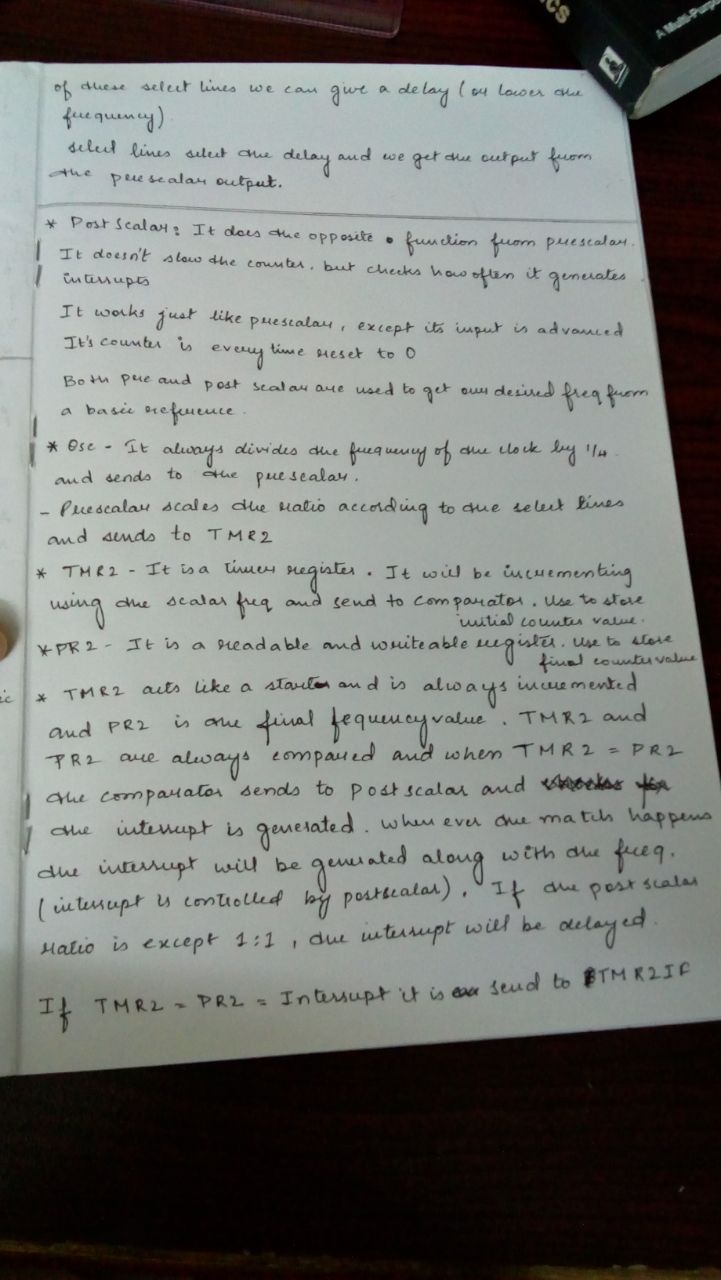 CS
A Multi-Purp
of these select lines we can give a delay (or lower the
frequency)
select lines select the delay and we get the output from
the prescalar output.
* Post Scalar: It does the opposite function from prescalar.
It doesn't slow the counter, but checks how often it generates
interrupts
It works just like prescalar, except its input is advanced
It's counter is every time reset to 0
Both pre and post scalar are used to get our desired freq from
a basic reference.
* Osc - It always divides the frequency of the clock by 1/4.
and sends to the prescalar.
- Prescalar scales the ratio according to the select lines
and sends to TMR2
* TMR2 - It is a timer register. It will be incrementing
using the scalar freq and send to comparator. Use to store
initial counter value.
* PR2 - It is a readable and writeable register. Use to store
final counter value
* TMR2 acts like a start and is always incremented
and PR2 is the final fequency value. TMR2 and
PR2 are always compared and when TMR2 = PR2
the comparator sends to postscalar and
the interrupt is generated. when ever the match happens
the interrupt will be generated along with the freq.
(interrupt is controlled by postscalar). If the post scalar
ratio is except 1:1, the interrupt will be delayed.
If TMR2 = PR2 = Interrupt it is send to TMR2IF